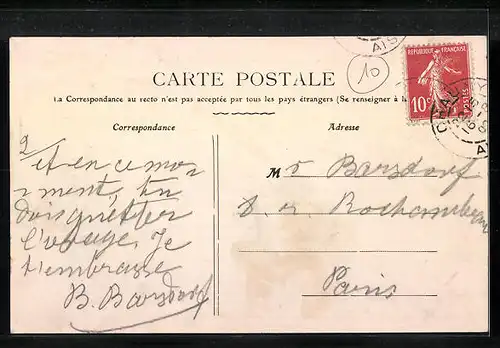 CARTE POSTALE
10
REPUBLIQUE FRANÇAISE
10c
POSTES
La Correspondance au recto n'est pas acceptée par tous les pays étrangers (Se renseigner à la
Correspondance
Adresse
2/ et en ce mo-
ment, tu
dois guetter
l'orage. Je
t'embrasse
B. Barsdorf
Mr Barsdorf
8. r. Rochambeau
Paris